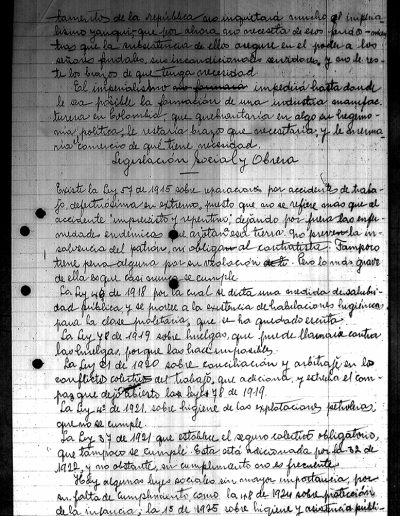 tamentos de la república no inquietará mucho al imperia-
lismo yanqui, que por ahora no necesita de esos
tras que la subsistencia de ellos asegure en el poder a los
señores feudales, sus incondicionales servidores, y no le res-
te los brazos de que tenga necesidad.
El imperialismo impedirá hasta donde
le sea posible la formación de una industria manufac-
turera en Colombia, que quebrantaria en algo su hegemo-
nía política, le restaria brazos que necesitaria, y le
ria comercio de que tiene necesidad.
Legislación Social y Obrera
Existe la Ley 57 de 1915 sobre reparaciones por accidentes de traba-
jo, defectuosisima en extremo, puesto que no se refiere mas que al
accidente "imprevisto y repentino", dejando por fuera las enfer-
medades endémicas que azotan esa tierra. No preveen la in-
solvencia del patrón, ni obligan al contratista. Tampoco
tiene pena alguna por su violación. Pero lo más grave
de ella es que casi nunca se cumple.
La Ley 46 de 1918 por la cual se dicta una medida de salubri-
dad pública y se provee a la existencia de habitaciones higiénicas
para la clase proletaria, que se ha quedado escrita.
La Ley 78 de 1919 sobre huelgas, que puede llamarse contra
las huelgas, porque las hace imposibles.
La Ley 21 de 1920 sobre conciliación y arbitraje en los
conflictos colectivos del trabajo, que adiciona, y estrecha el com-
pas que dejó abierto la ley 78 de 1919.
La Ley 4ª de 1921, sobre higiene de las explotaciones petroleras,
que no se cumple.
La Ley 37 de 1921 que establece el seguro colectivo obligatorio,
que tampoco se cumple. Esta está adicionada por la 32 de
1922, y no obstante, su cumplimiento no es frecuente.
Hay algunas leyes sociales sin mayor importancia, por
su falta de cumplimiento, como la 48 de 1924 sobre protección
de la infancia; la 15 de 1925 sobre higiene y asistencia públi-